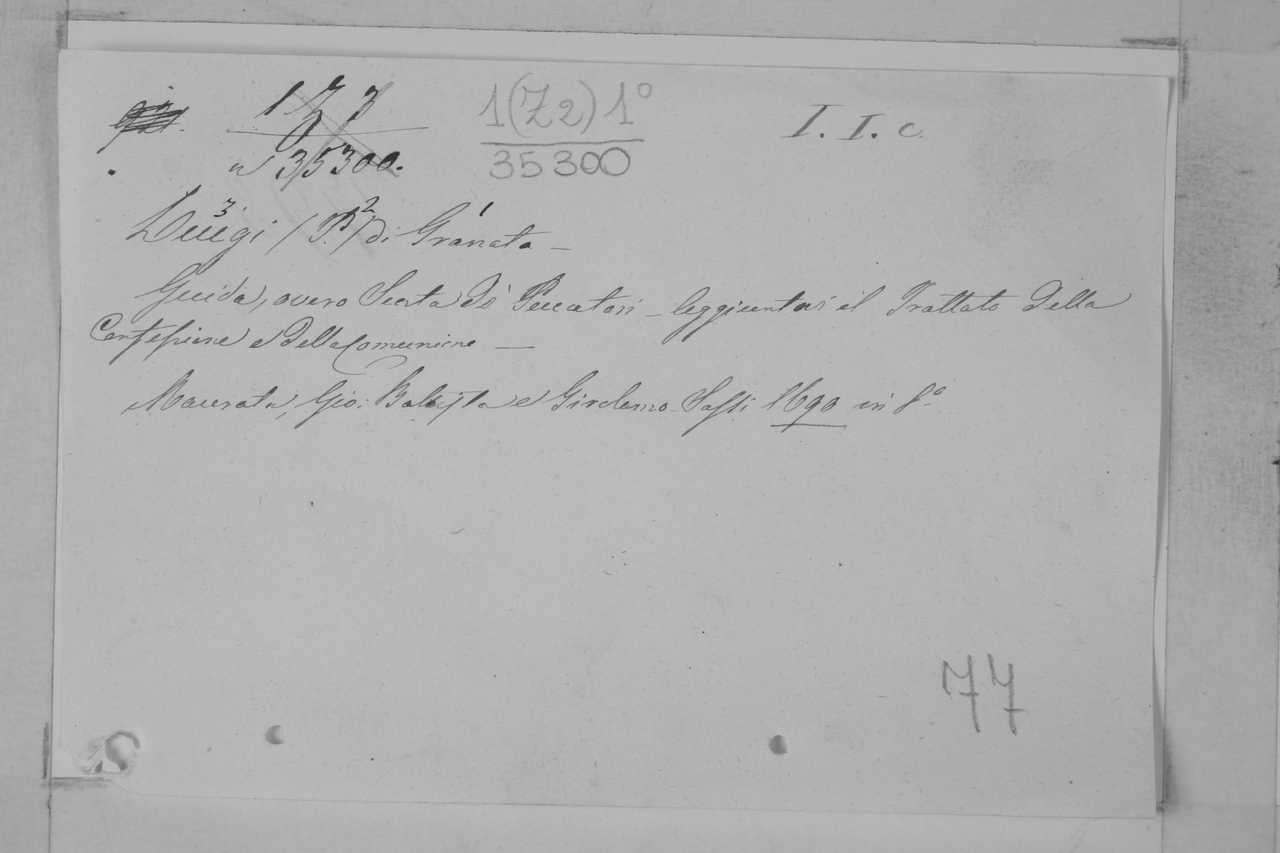 1 Z 7
n 35300.
1(Z2)1º
35300
I. I. c.
Luigi (P.) di Granata —
3 2 1
Guida, overo Scorta de' Peccatori — Aggiuntovi il Trattato della
Confessione e della Comunione —
Macerata, Gio: Batista e Girolamo Sassi 1690 in 8.º
77